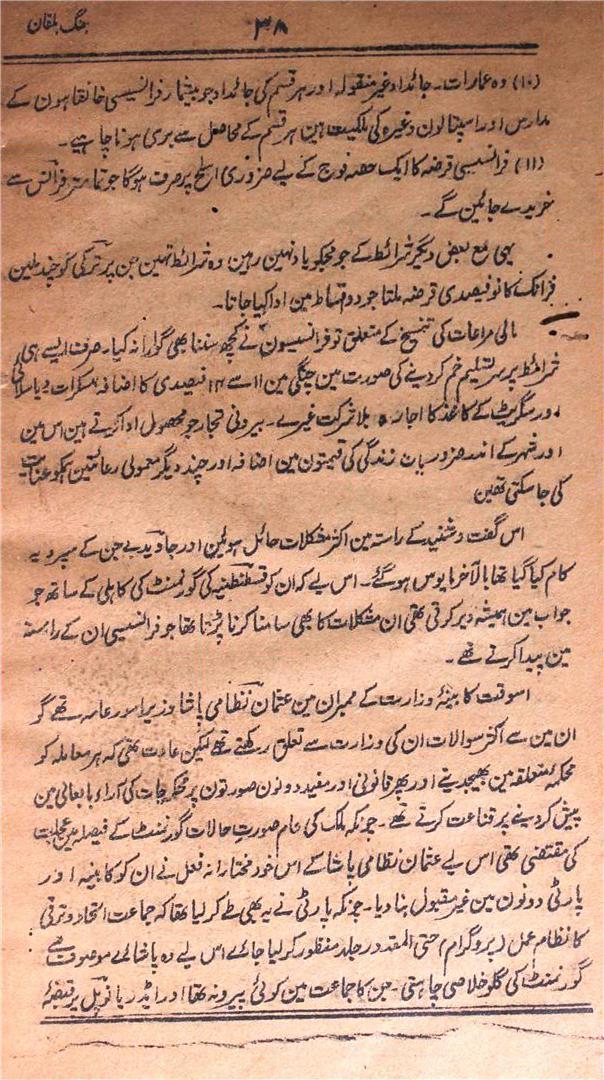 جنگ بلقان
۳۸
(۱۰) وہ عمارات۔ جائداد غیر منقولہ اور ہر قسم کی جائداد جو بیشمار فرانسیسی خانقاہون کے
مدارس اور اسپتالون وغیرہ کی ملکیت ہین ہر قسم کے محاصل سے بری ہونا چاہیے۔
(۱۱) فرانسیسی قرضہ کا ایک حصہ فوج کے لیے ضروری اسلحہ پر صرف ہوگا جو تمامتر فرانس سے
خریدے جائین گے۔
یہی مع بعض دیگر شرائط کے جو مجکو یاد نہین رہین وہ شرائط تھین جن پر ترکی کو چند ملین
فرانک کا نو فیصدی قرضہ ملتا جو دو اقساط مین ادا کیا جاتا۔
مالی مراعات کی تنسیخ کے متعلق تو فرانسیسیون نے کچھ سننا بھی گوارا نہ کیا۔ صرف ایسے ہی
شرائط پر سر تسلیم خم کردینے کی صورت مین چنگی مین ۱۱ سے ۱۴ فیصدی کا اضافہ مسکرات دیا سلائی
اور سگریٹ کے کاغذ کا اجارہ بلا شرکت غیرے۔ بیرونی تجار جو محصول ادا کرتے ہین اس مین
اور شہر کے اندر ضروریات زندگی کی قیمتون مین اضافہ اور چند دیگر معمولی رعائتین ہمکو عنایت
کی جاسکتی تھین
اس گفت و شنید کے راستہ مین اکثر مشکلات حائل ہوئین اور جاوید بے جن کے سپرد یہ
کام کیا گیا تھا بالآخر مایوس ہوگئے۔ اس لیے کہ ان کو قسطنطنیہ کی گورنمنٹ کی کاہلی کے ساتھ جو
جواب مین ہمیشہ دیر کرتی تھی ان مشکلات کا بھی سامنا کرنا پڑتا تھا جو فرانسیسی ان کے راستہ
مین پیدا کرتے تھے۔
اسوقت کابینۂ وزارت کے ممبران مین عثمان نظامی پاشا وزیر امور عامہ تھے گو
ان مین سے اکثر سوالات ان کی وزارت سے تعلق رکھتے تھے لیکن عادت تھی کہ ہر معاملہ کو
محکمۂ متعلقہ مین بھیجدیتے اور پھر قانونی اور مفید دونون صورتون پر محکمہ جات کی آراء بابعالی مین
پیش کر دینے پر قناعت کرتے تھے۔ چونکہ ملک کی عام صورت حالات گورنمنٹ کے فیصلہ مین عجلت
کی مقتضی تھی اس لیے عثمان نظامی پاشا کے اس خود مختارانہ فعل نے ان کو کابینہ اور
پارٹی دونون مین غیر مقبول بنا دیا۔ چونکہ پارٹی نے یہ بھی طے کر لیا تھا کہ جماعت اتحاد و ترقی
کا نظام عمل (پروگرام) حتی المقدور جلد منظور کر لیا جائے اس لیے وہ پاشائے موصوف سے
گورنمنٹ کی گلو خلاصی چاہتی۔ جن کا جماعت مین کوئی پیرو نہ تھا اور ایڈریانوپل پر قبضہ